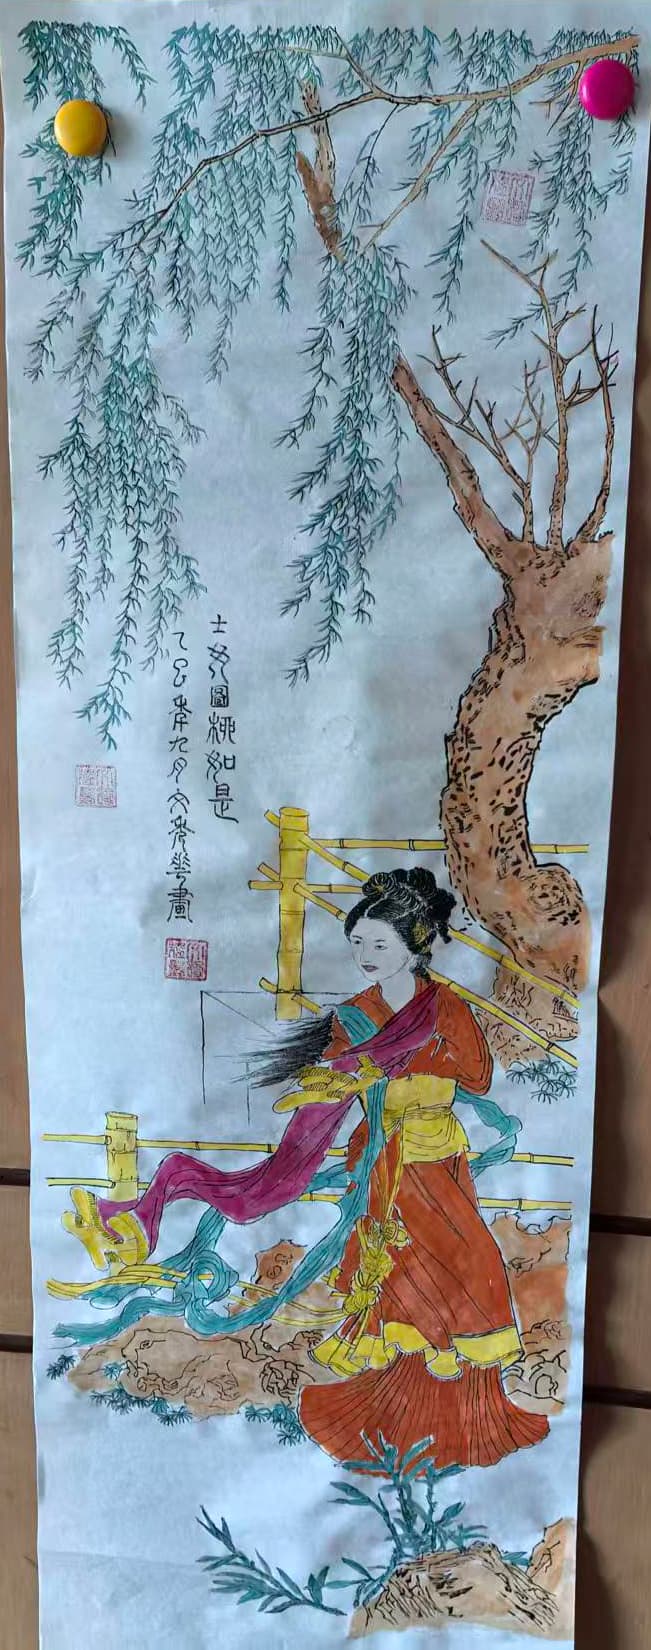 士女圖柳如是
乙巳年九月文秀華畫